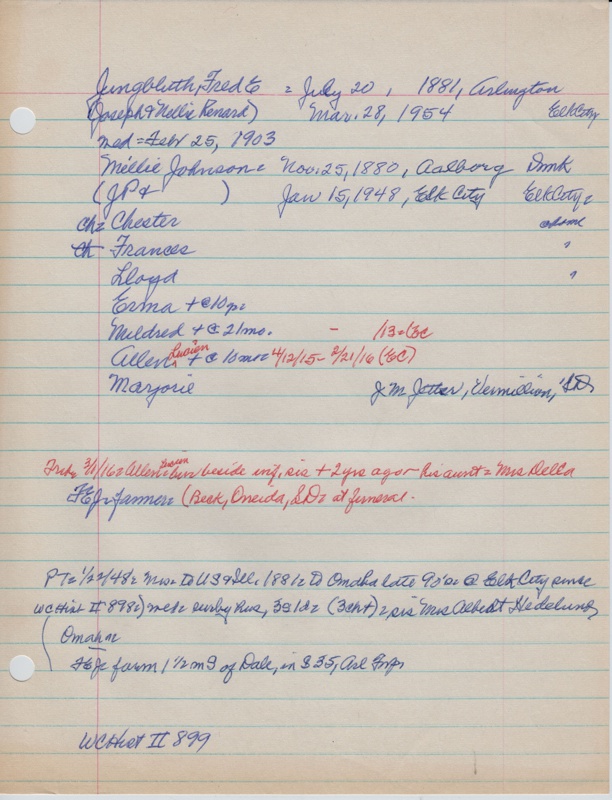 Jungbluth, Fred E = July 20, 1881, Arlington
(Joseph & Nellie Renard) Mar. 28, 1954 Elk City
med = Febr 25, 1903
Millie Johnson = Nov. 25, 1880, Aalborg Dmk
(JP & ) Jan 15, 1948, Elk City Elk City =
ch = Chester
ch Frances "
Lloyd "
Erma + @ 10 
Mildred + @ 21 mo. - /13 = (EC
Allen Lucien + @ 10 mo = 4/12/15 - 2/21/16 (EC)
Marjorie J. M. Jetter, Vermillion, SD
Trib = 3/1/16 = Allen Lucien = bur beside inf. sis + 2 yrs ago - his aunt = Mrs Della
FEJ = farmer = (Beck, Oneida, SD = at funeral.
PT = 1/22/48 = Mrs = to US & Ill. 1881 = to Omaha late 90's = @ Elk City since
WC Hist II 898 =) meth = sur by hus, 3s 1d = (3ch+) = sis Mrs Albert Hedelund,
( Omaha =
FEJ = farm 1 1/2 m S of Dale, in S 35, Arl
WC Hist II 899